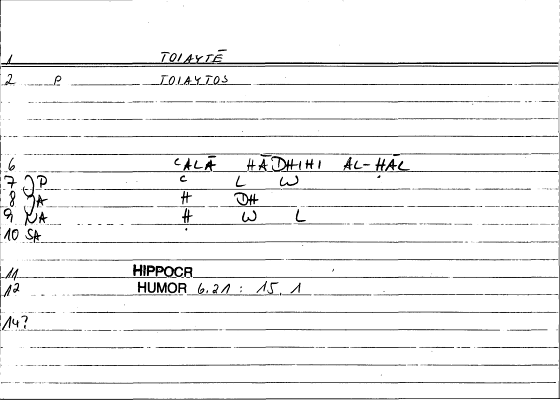 1 TOIAYTĒ
2 P TOIAYTOS
6 ʿALĀ HĀDHIHI AL-ḤĀL
7 P ʿ L W
8 A H DH
9 NA Ḥ W L
10 SA
11 HIPPOCR
12 HUMOR 6.21 : 15, 1
14?